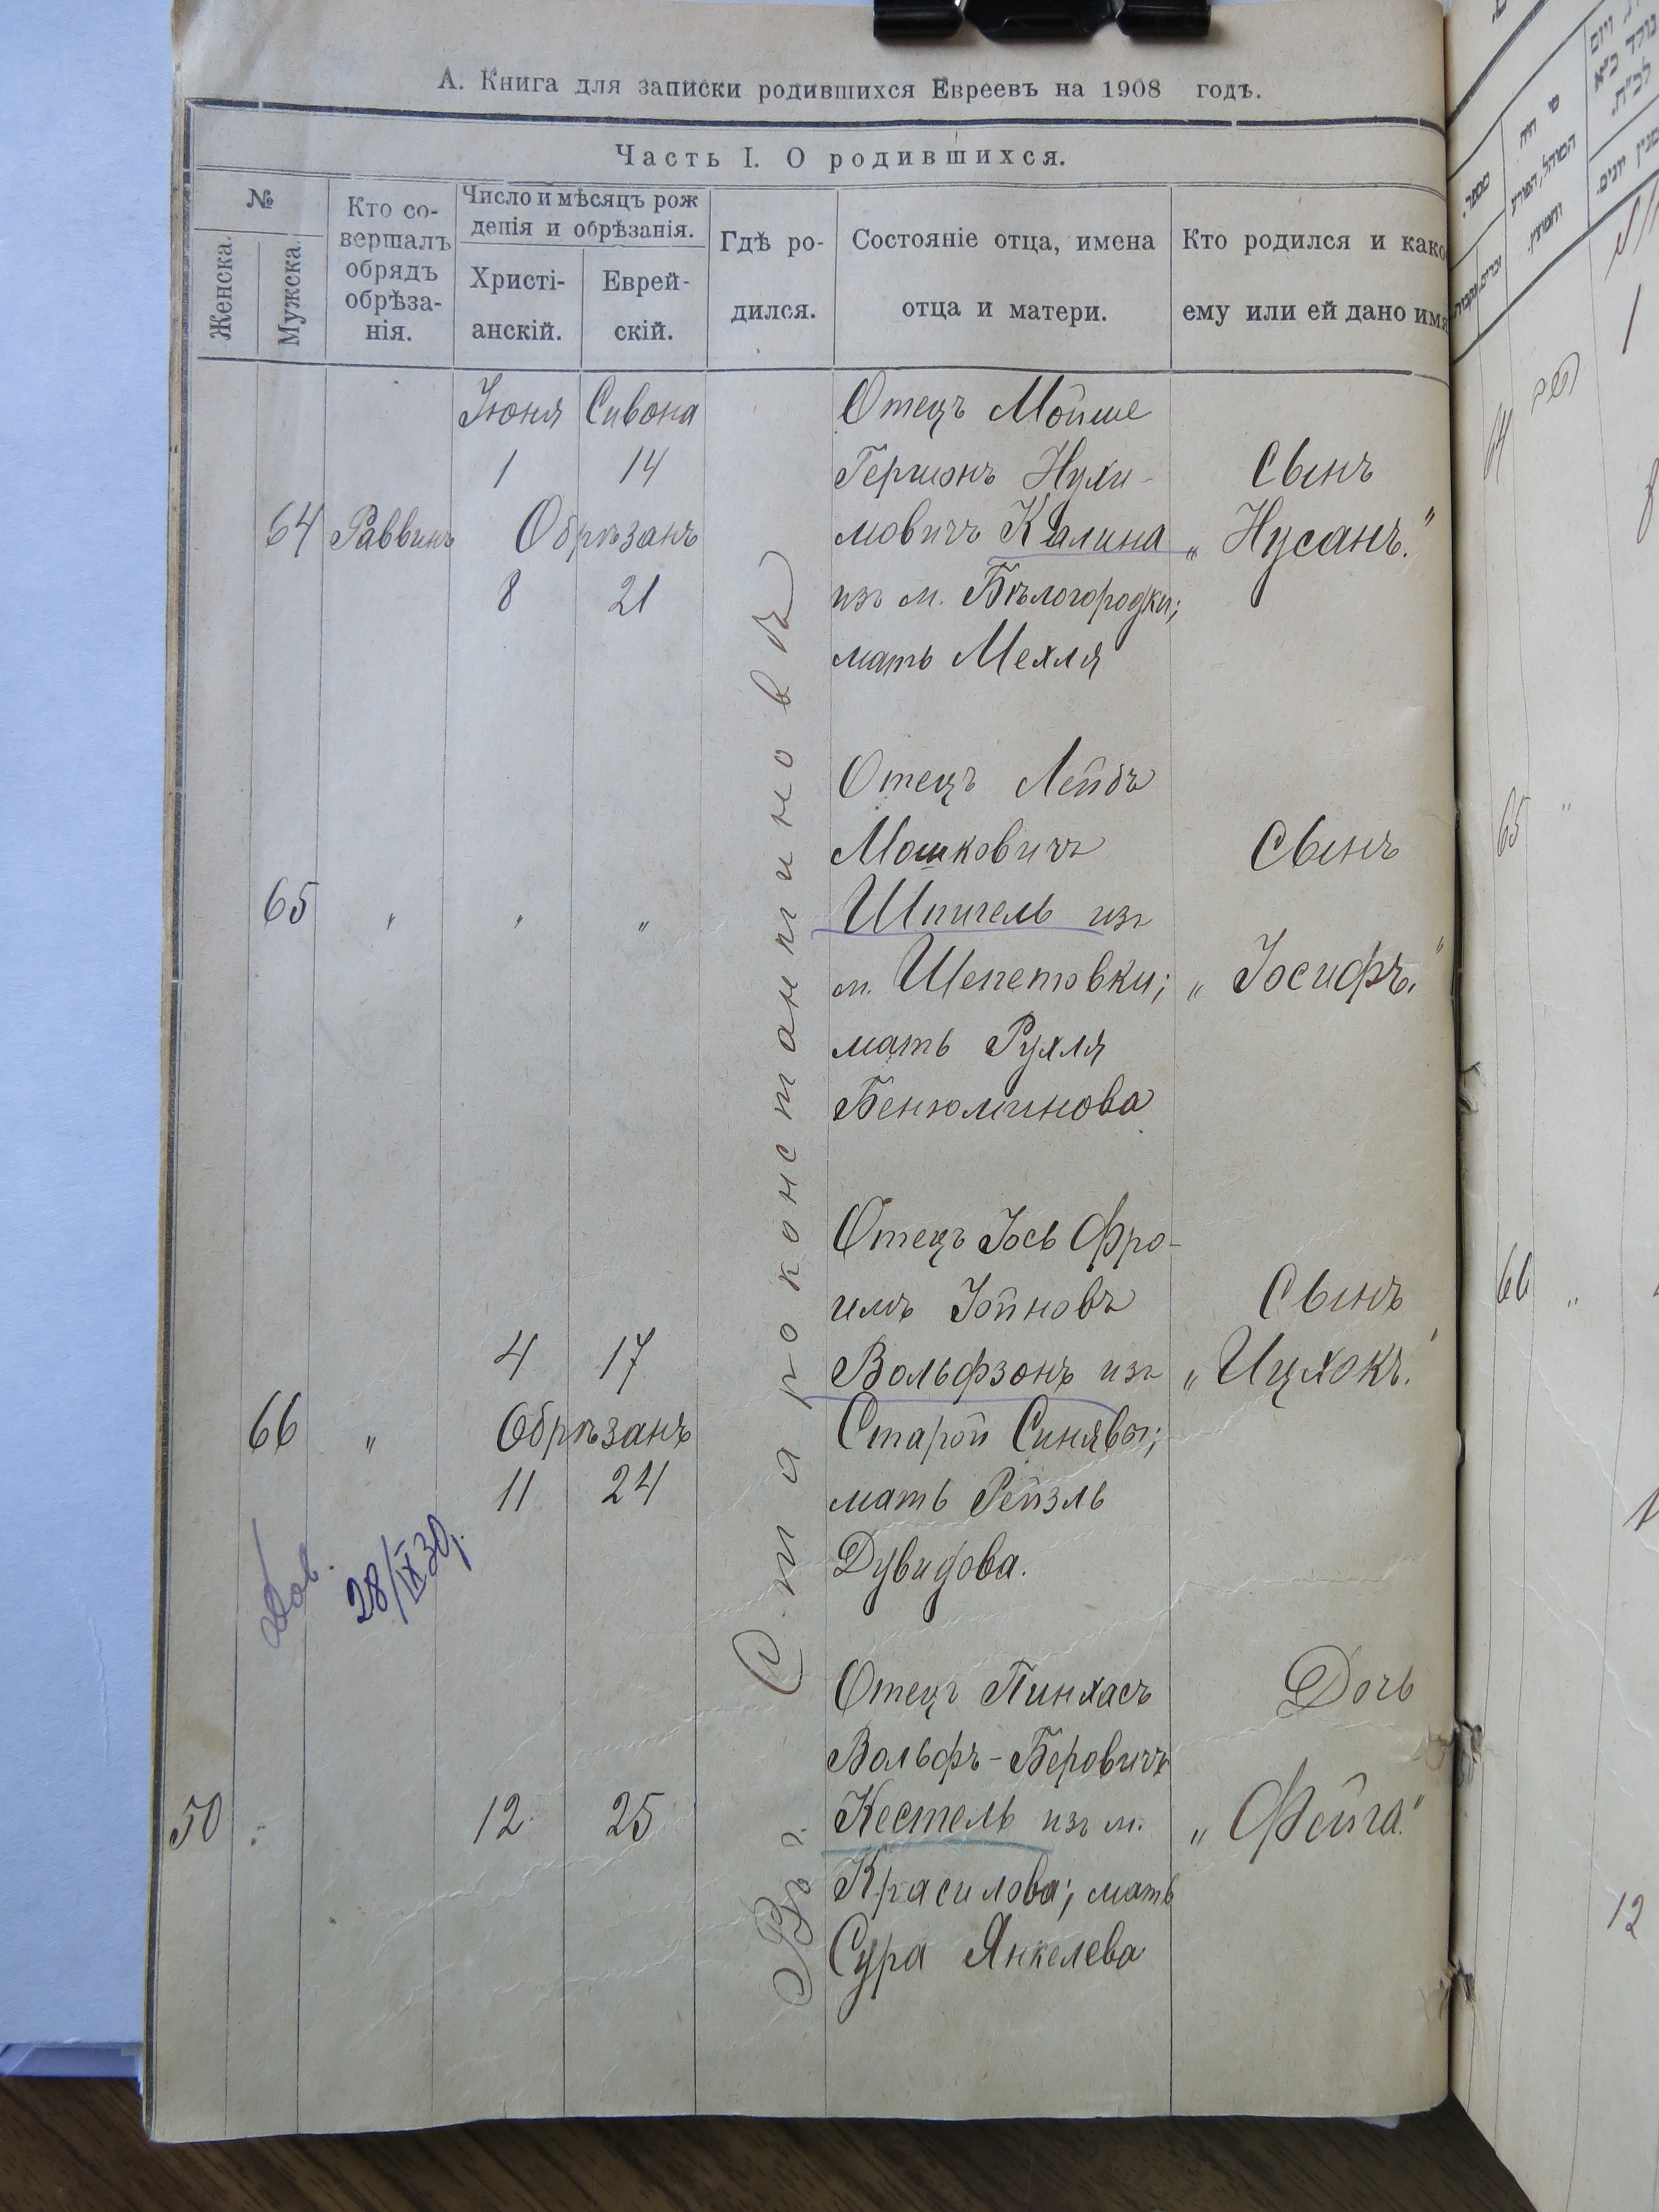 А. Книга для записки родившихся Евреевъ на 1908 годъ.
Часть I. О родившихся.
№
Женска.
Мужска.
Кто со-
вершалъ
обрядъ
обрѣза-
нія.
Число и мѣсяцъ рож
денія и обрѣзанія.
Христі-
анскій.
Еврей-
скій.
Гдѣ ро-
дился.
Состояніе отца, имена
отца и матери.
Кто родился и како
ему или ей дано имя
Въ г. Староконстантиновѣ
Іюня Сивона
1 14
64 Раввинъ Обрѣзанъ
8 21
Отецъ Мойше
Гершонъ Нухи-
мовичъ Калина
изъ м. Бѣлогородки;
мать Мехля
Сынъ
„Нусанъ."
65 " " "
Отецъ Лейбъ
Мошковичъ
Шпигель изъ
м. Шепетовки;
мать Рухля
Бенюминова
Сынъ
„Іосифъ."
4 17
66 " Обрѣзанъ
11 24
28/IX 30
Отецъ Іось Фро-
имъ Іойновъ
Вольфзонъ изъ
Старой Синявы;
мать Рейзль
Дувидова.
Сынъ
„Ицхокъ."
50 12 25
Отецъ Пинхасъ
Вольфъ-Беровичъ
Кестель изъ м.
Красилова; мать
Сура Янкелева
Дочь
„Фейга."
64
65 "
66 "
1
8
12